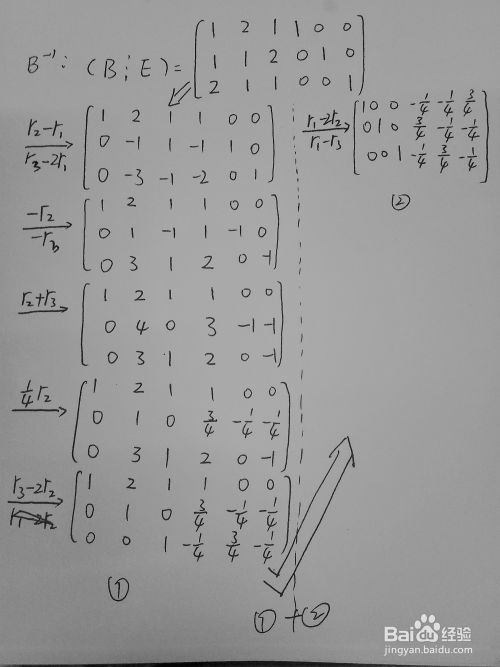 B⁻¹: (B┊E) = ( 1 2 1 1 0 0
1 1 2 0 1 0
2 1 1 0 0 1 )
r₂-r₁ / r₃-2r₁ → ( 1 2 1 1 0 0
0 -1 1 -1 1 0
0 -3 -1 -2 0 1 )
-r₂ / -r₃ → ( 1 2 1 1 0 0
0 1 -1 1 -1 0
0 3 1 2 0 -1 )
r₂+r₃ → ( 1 2 1 1 0 0
0 4 0 3 -1 -1
0 3 1 2 0 -1 )
¼r₂ → ( 1 2 1 1 0 0
0 1 0 3/4 -1/4 -1/4
0 3 1 2 0 -1 )
r₃-2r₂ → ( 1 2 1 1 0 0
0 1 0 3/4 -1/4 -1/4
0 0 1 -1/4 3/4 -1/4 )
①
r₁-2r₂ / r₁-r₃ → ( 1 0 0 -1/4 -1/4 3/4
0 1 0 3/4 -1/4 -1/4
0 0 1 -1/4 3/4 -1/4 )
②
①+②
Baidu 经验
jingyan.baidu.com